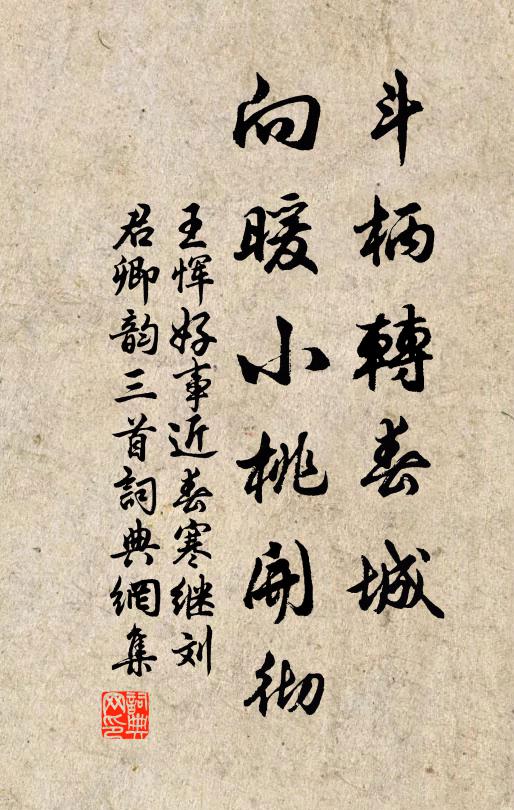 斗柄轉春城
向暖小桃開彻
王恽好事近春寒继刘
君卿韵三首詞典網集
詞典网印